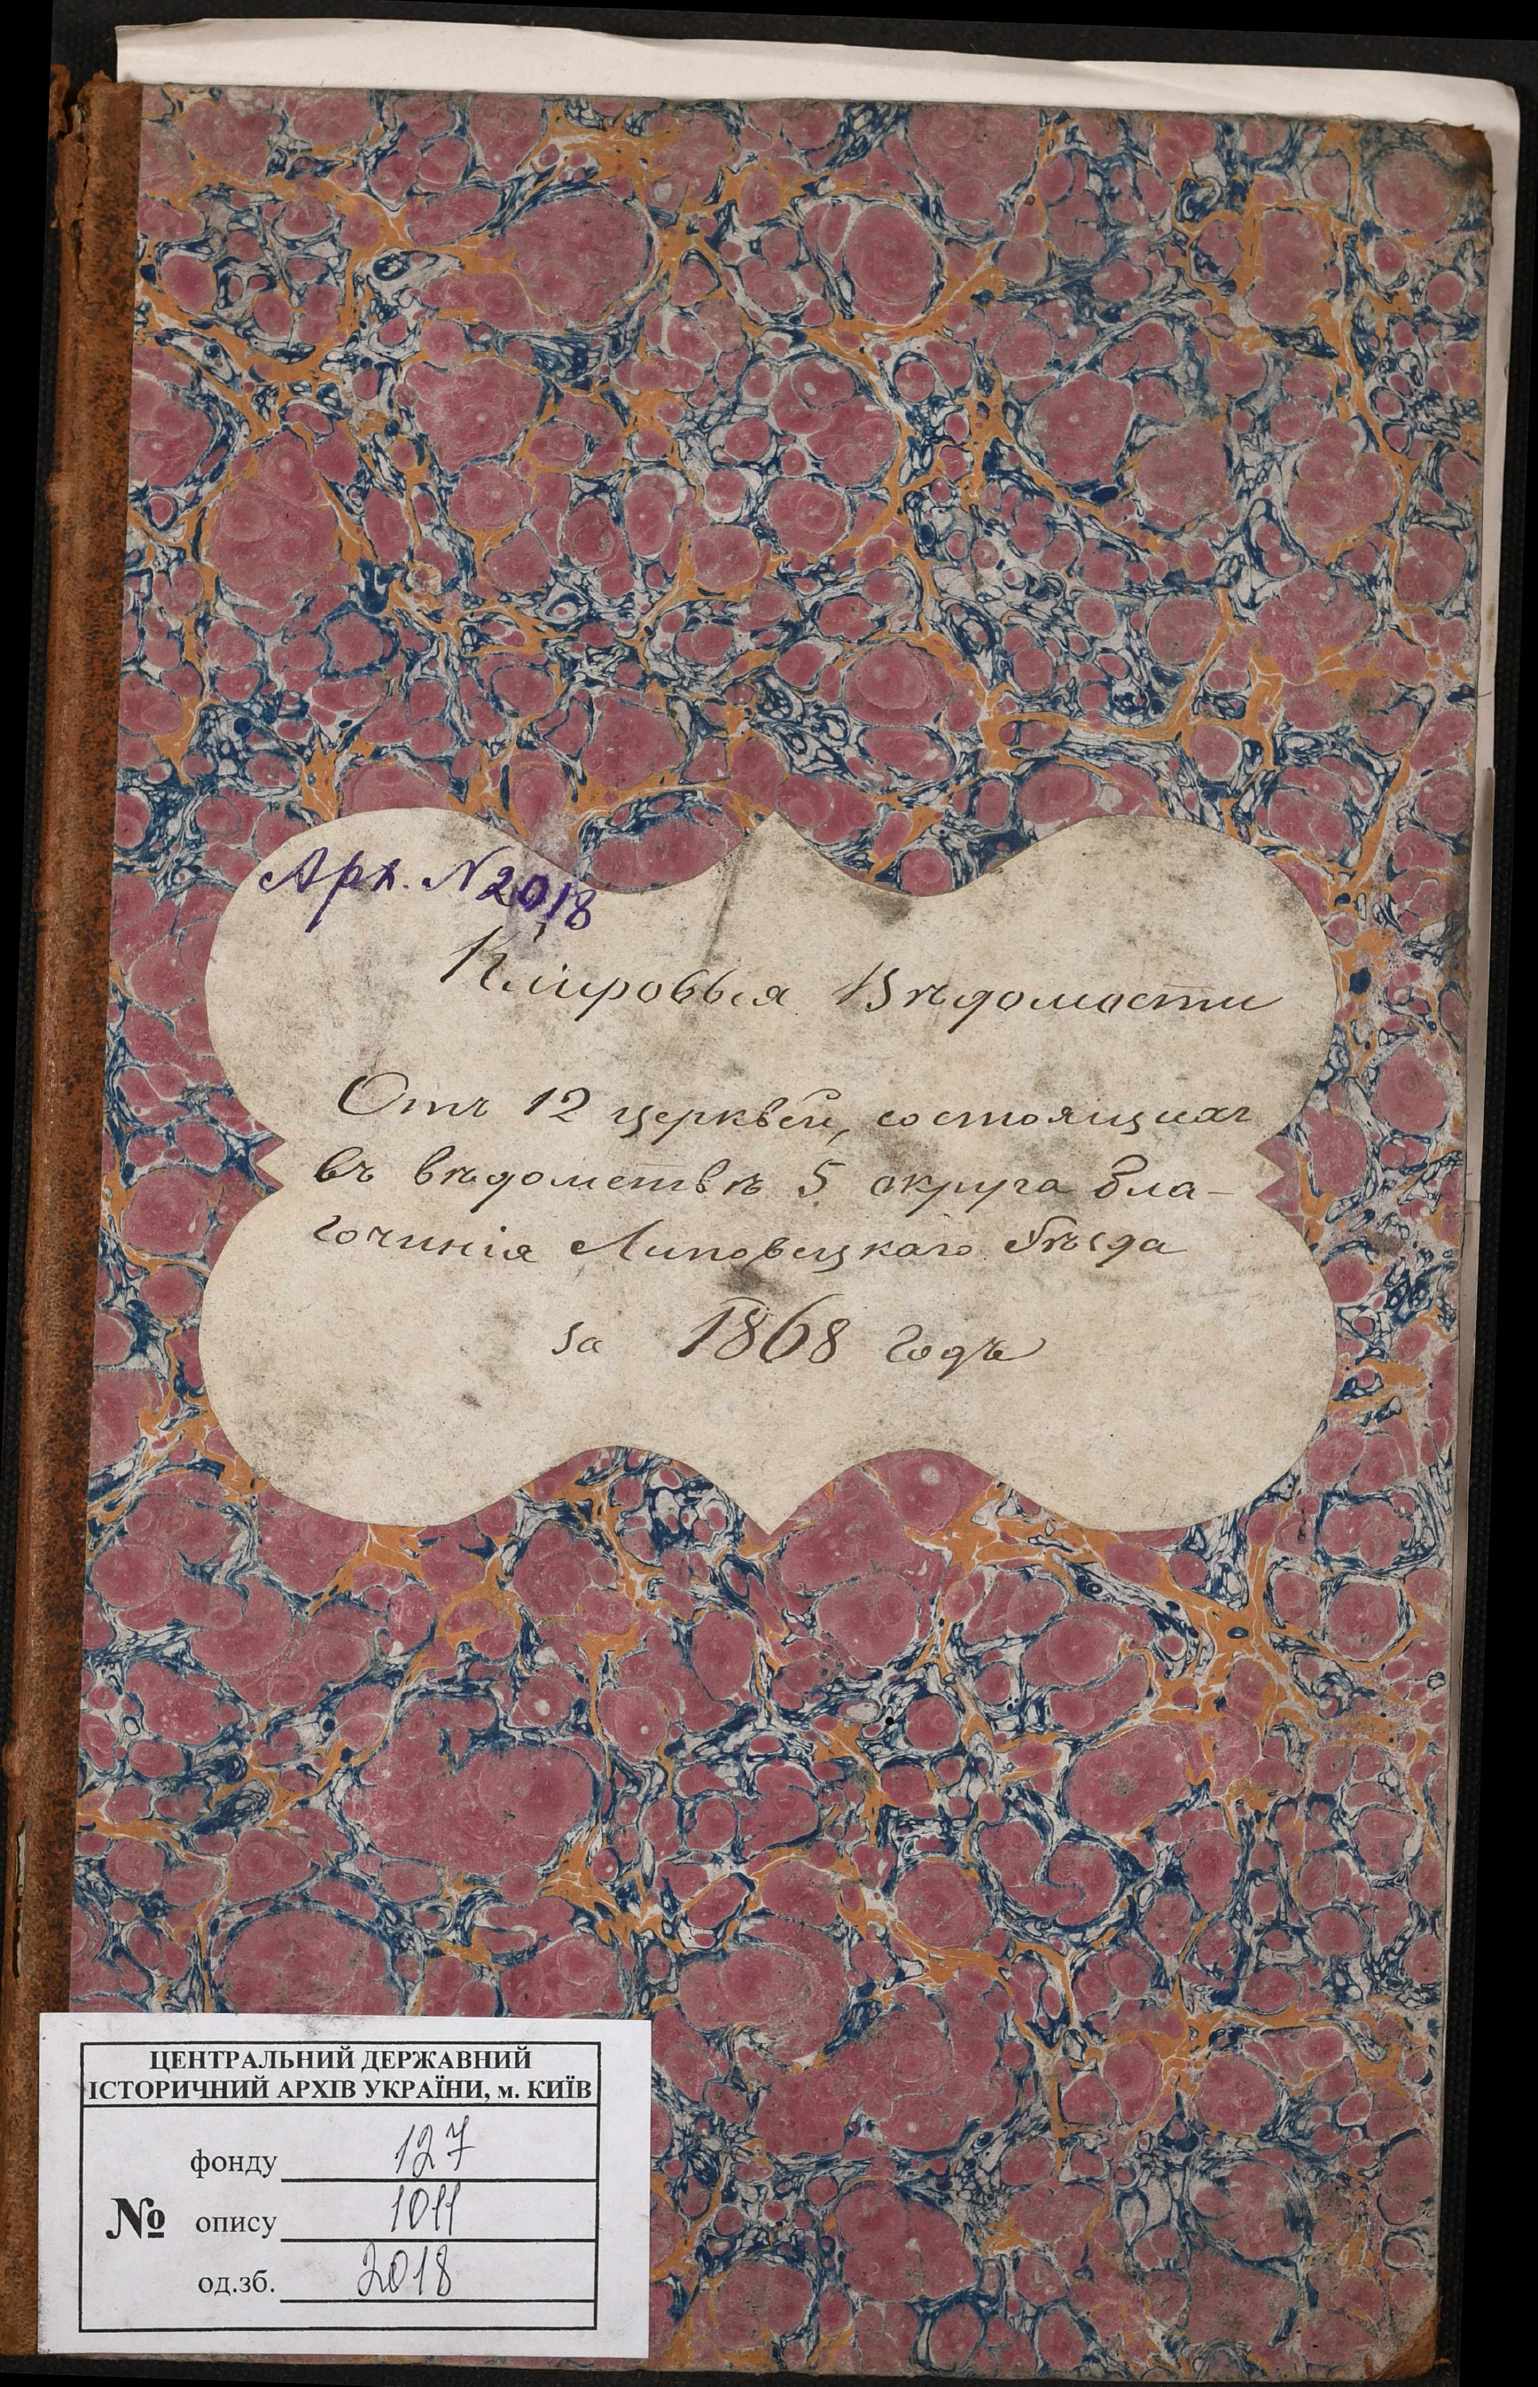 Арх. № 2018
Клировыя Вѣдомости
Отъ 12 церквей, состоящихъ
въ вѣдомствѣ 5 округа бла-
гочинія Липовецкаго Уѣзда
за 1868 годъ
ЦЕНТРАЛЬНИЙ ДЕРЖАВНИЙ
ІСТОРИЧНИЙ АРХІВ УКРАЇНИ, м. КИЇВ
фонду 127
№ опису 1011
од.зб. 2018